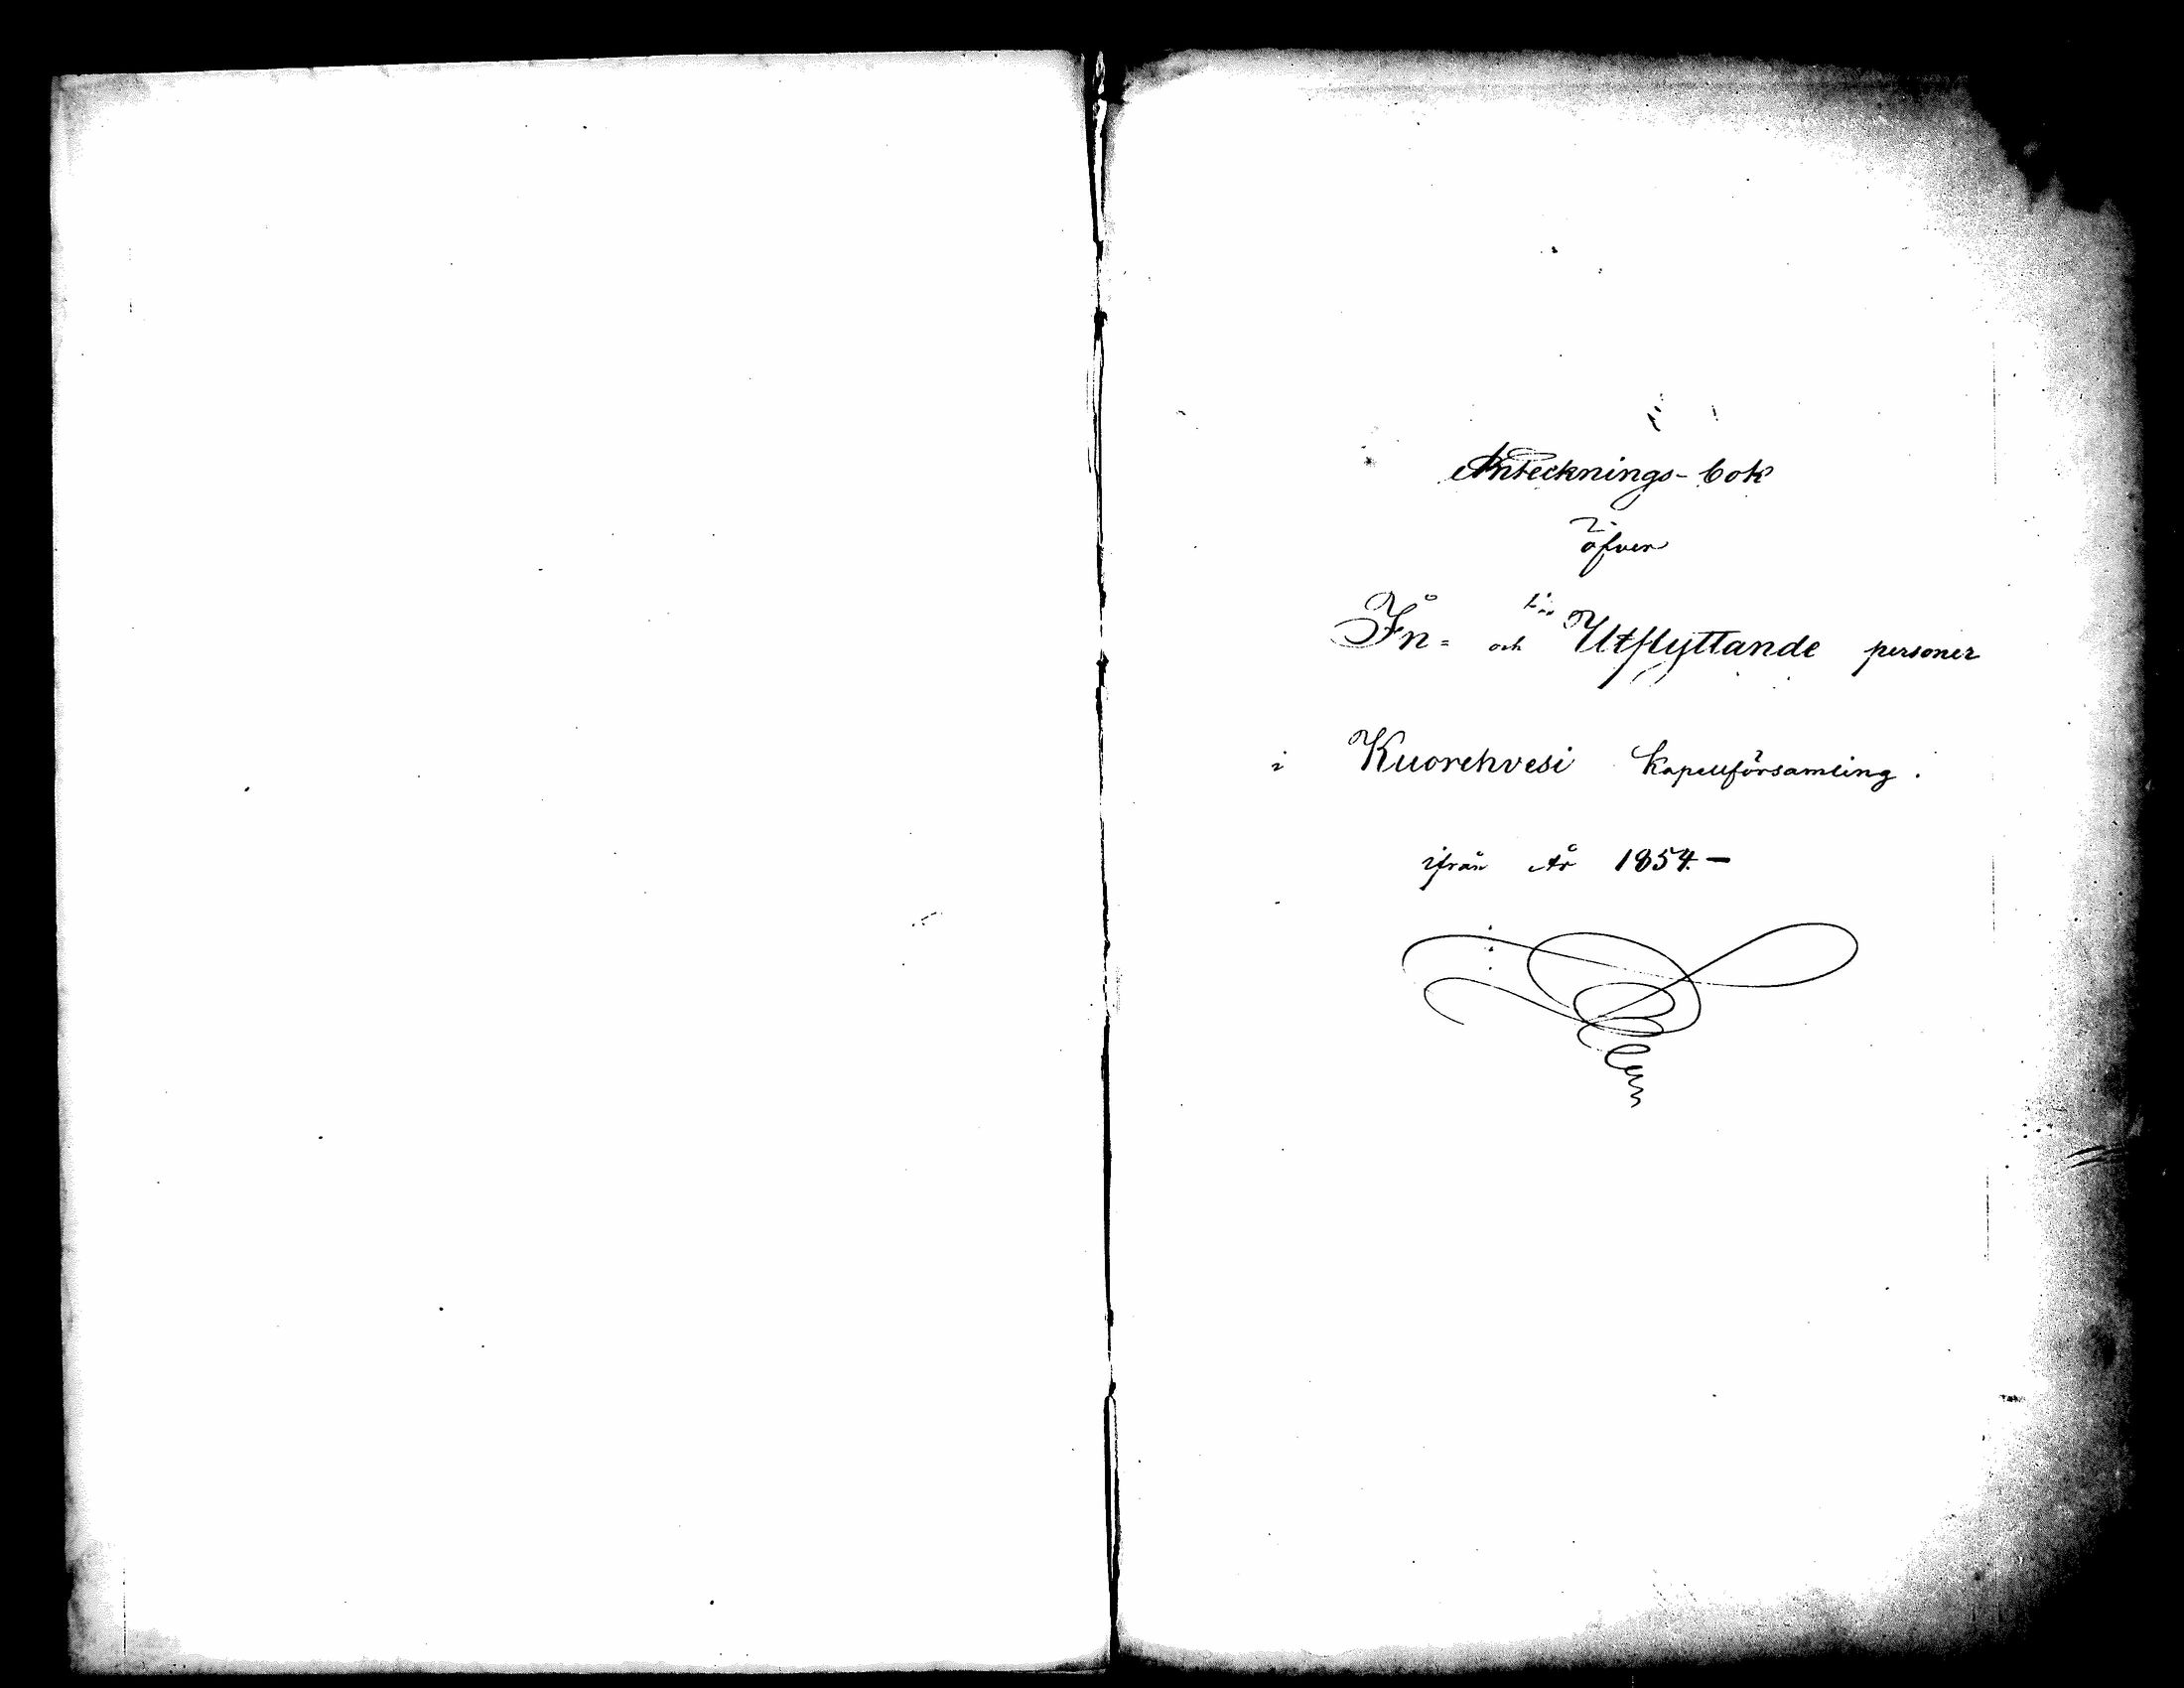 Antecknings-bok
öfver
In= och Utflyttande personer
i Kuorehvesi kapellförsamling.
ifrån År 1854.—